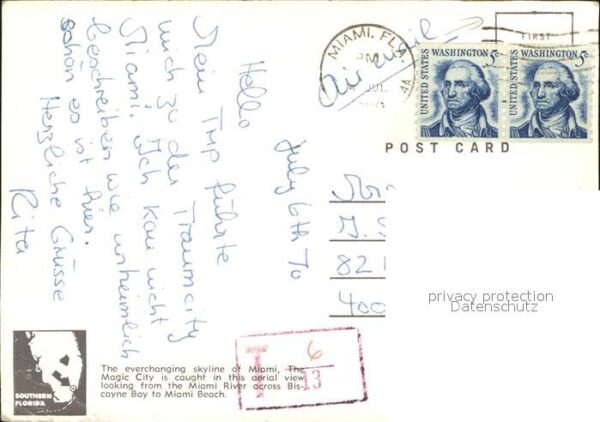 July 6th 70
Hello
Mein Trip führte
mich zu der Traumcity
Miami. Ich kan nicht
beschreiben wie unheimlich
schön es ist hier.
Herzliche Grüsse
Rita
air mail
MIAMI, FLA.
PM
JUL
FIRST
UNITED STATES
WASHINGTON 5c
UNITED STATES
WASHINGTON 5c
POST CARD
82
400
privacy protection
Datenschutz
T 6
13
SOUTHERN
FLORIDA
The everchanging skyline of Miami, The
Magic City is caught in this aerial view
looking from the Miami River across Bis-
cayne Bay to Miami Beach.